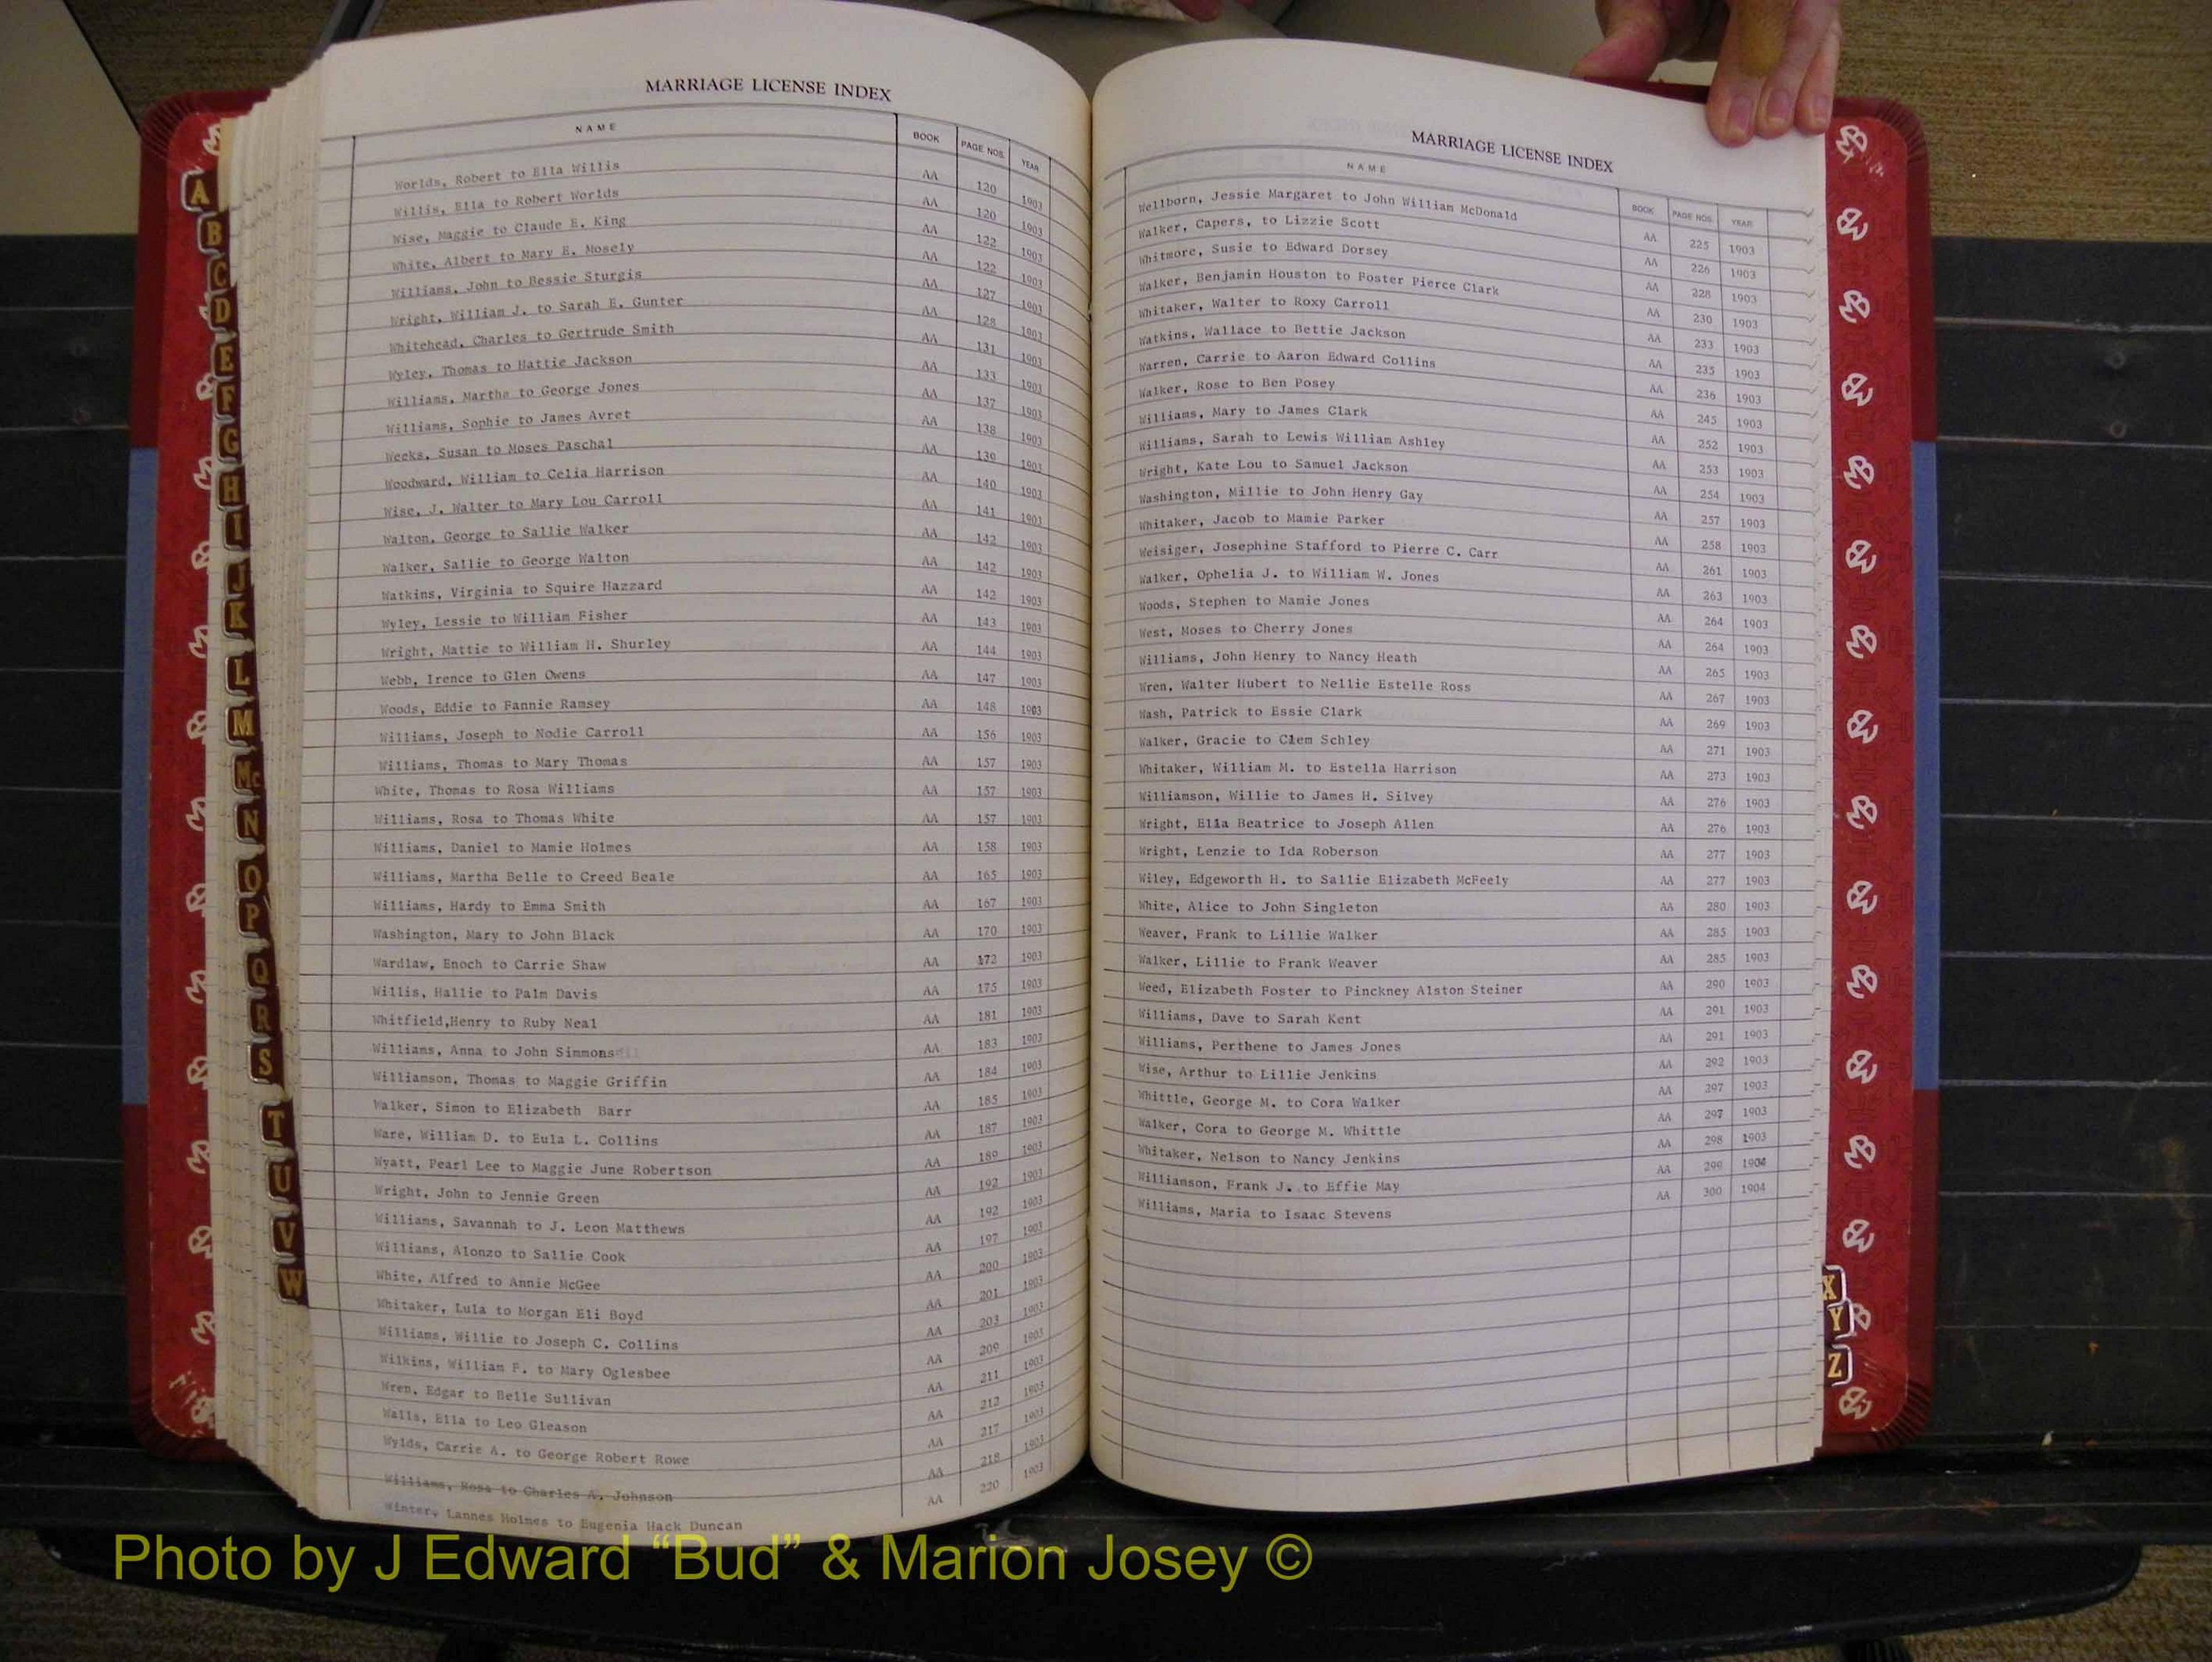 MARRIAGE LICENSE INDEX
NAME BOOK PAGE NOS. YEAR
Worlds, Robert to Ella Willis AA 120 1903
Willis, Ella to Robert Worlds AA 120 1903
Wise, Maggie to Claude E. King AA 122 1903
White, Albert to Mary E. Mosely AA 122 1903
Williams, John to Bessie Sturgis AA 127 1903
Wright, William J. to Sarah E. Gunter AA 128 1903
Whitehead, Charles to Gertrude Smith AA 131 1903
Wyley, Thomas to Hattie Jackson AA 133 1903
Williams, Martha to George Jones AA 137 1903
Williams, Sophie to James Avret AA 138 1903
Weeks, Susan to Moses Paschal AA 139 1903
Woodward, William to Celia Harrison AA 140 1903
Wise, J. Walter to Mary Lou Carroll AA 141 1903
Walton, George to Sallie Walker AA 142 1903
Walker, Sallie to George Walton AA 142 1903
Watkins, Virginia to Squire Hazzard AA 142 1903
Wyley, Lessie to William Fisher AA 143 1903
Wright, Mattie to William H. Shurley AA 144 1903
Webb, Irence to Glen Owens AA 147 1903
Woods, Eddie to Fannie Ramsey AA 148 1903
Williams, Joseph to Nodie Carroll AA 156 1903
Williams, Thomas to Mary Thomas AA 157 1903
White, Thomas to Rosa Williams AA 157 1903
Williams, Rosa to Thomas White AA 157 1903
Williams, Daniel to Mamie Holmes AA 158 1903
Williams, Martha Belle to Creed Beale AA 165 1903
Williams, Hardy to Emma Smith AA 167 1903
Washington, Mary to John Black AA 170 1903
Wardlaw, Enoch to Carrie Shaw AA 172 1903
Willis, Hallie to Palm Davis AA 175 1903
Whitfield,Henry to Ruby Neal AA 181 1903
Williams, Anna to John Simmons AA 183 1903
Williamson, Thomas to Maggie Griffin AA 184 1903
Walker, Simon to Elizabeth Barr AA 185 1903
Ware, William D. to Eula L. Collins AA 187 1903
Wyatt, Pearl Lee to Maggie June Robertson AA 189 1903
Wright, John to Jennie Green AA 192 1903
Williams, Savannah to J. Leon Matthews AA 192 1903
Williams, Alonzo to Sallie Cook AA 197 1903
White, Alfred to Annie McGee AA 200 1903
Whitaker, Lula to Morgan Eli Boyd AA 201 1903
Williams, Willie to Joseph C. Collins AA 203 1903
Wilkins, William F. to Mary Oglesbee AA 209 1903
Wren, Edgar to Belle Sullivan AA 211 1903
Walls, Ella to Leo Gleason AA 212 1903
Wylds, Carrie A. to George Robert Rowe AA 217 1903
Williams, Rosa to Charles A. Johnson AA 218 1903
Winter, Lannes Holmes to Eugenia Hack Duncan AA 220 1903
MARRIAGE LICENSE INDEX
NAME BOOK PAGE NOS. YEAR
Wellborn, Jessie Margaret to John William McDonald AA 225 1903
Walker, Capers, to Lizzie Scott AA 226 1903
Whitmore, Susie to Edward Dorsey AA 228 1903
Walker, Benjamin Houston to Foster Pierce Clark AA 230 1903
Whitaker, Walter to Roxy Carroll AA 233 1903
Watkins, Wallace to Bettie Jackson AA 235 1903
Warren, Carrie to Aaron Edward Collins AA 236 1903
Walker, Rose to Ben Posey AA 245 1903
Williams, Mary to James Clark AA 252 1903
Williams, Sarah to Lewis William Ashley AA 253 1903
Wright, Kate Lou to Samuel Jackson AA 254 1903
Washington, Millie to John Henry Gay AA 257 1903
Whitaker, Jacob to Mamie Parker AA 258 1903
Weisiger, Josephine Stafford to Pierre C. Carr AA 261 1903
Walker, Ophelia J. to William W. Jones AA 263 1903
Woods, Stephen to Mamie Jones AA 264 1903
West, Moses to Cherry Jones AA 264 1903
Williams, John Henry to Nancy Heath AA 265 1903
Wren, Walter Hubert to Nellie Estelle Ross AA 267 1903
Wash, Patrick to Essie Clark AA 269 1903
Walker, Gracie to Clem Schley AA 271 1903
Whitaker, William M. to Estella Harrison AA 273 1903
Williamson, Willie to James H. Silvey AA 276 1903
Wright, Ella Beatrice to Joseph Allen AA 276 1903
Wright, Lenzie to Ida Roberson AA 277 1903
Wiley, Edgeworth H. to Sallie Elizabeth McFeely AA 277 1903
White, Alice to John Singleton AA 280 1903
Weaver, Frank to Lillie Walker AA 285 1903
Walker, Lillie to Frank Weaver AA 285 1903
Weed, Elizabeth Foster to Pinckney Alston Steiner AA 290 1903
Williams, Dave to Sarah Kent AA 291 1903
Williams, Perthene to James Jones AA 291 1903
Wise, Arthur to Lillie Jenkins AA 292 1903
Whittle, George M. to Cora Walker AA 297 1903
Walker, Cora to George M. Whittle AA 297 1903
Whitaker, Nelson to Nancy Jenkins AA 298 1903
Williamson, Frank J. to Effie May AA 299 1904
Williams, Maria to Isaac Stevens AA 300 1904
A
B
C
D
E
F
G
H
I
J
K
L
M
Mc
N
O
P
Q
R
S
T
U
V
W
X
Y
Z
Photo by J Edward “Bud” & Marion Josey ©